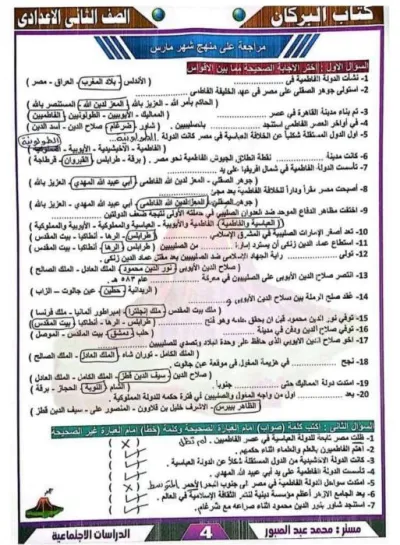 كتاب البركان
الصف الثاني الاعدادى
مراجعة على منهج شهر مارس
السؤال الأول : اختر الاجابة الصحيحة مما بين الأقواس
1- نشأت الدولة الفاطمية فى (الأندلس - بلاد المغرب - العراق - مصر)
2- استولى جوهر الصقلى على مصر فى عهد الخليفة الفاطمى
(الحاكم بأمر الله - العزيز بالله - المعز لدين الله - المستنصر بالله)
3- تم بناء مدينة القاهرة في عصر (المماليك - الأيوبيين - الطولونيين - الفاطميين)
4- فى أواخر العصر الفاطمى استنجد بالصليبيين. (شاور - ضرغام - صلاح الدين - أسد الدين)
5- اول الدول المستقلة شكلياً عن الخلافة العباسية في مصر كانت الدولة الطولونية
(الفاطمية - الأخشيدية - الأيوبية - الطولونية)
6- كانت مدينة نقطة انطلاق الجيوش الفاطمية نحو مصر (برقة - طرابلس - القيروان - قرطاجة)
7- تأسست الدولة الفاطمية في شمال أفريقيا على يد
(جوهر الصقلى - المعز لدين الله الفاطمى - أبي عبيد الله المهدي - العزيز بالله)
8- أصبحت مصر مقراً وداراً للخلافة الفاطمية بعد مجئ
(جوهر الصقلى - المعز لدين الله الفاطمى - أبي عبيد الله المهدي - العزيز بالله)
9- اختفت مظاهر الدفاع الموحد ضد العدوان الصليبي في حملته الأولى نتيجة ضعف الدولتين
(العباسية والفاطمية - الفاطمية والأيوبية - العباسية والمملوكية - الأيوبية والمملوكية)
10- تعد أصغر الإمارات الصليبية في المشرق الإسلامي (طرابلس - الرها - أنطاكيا - بيت المقدس)
11- استطاع عماد الدين زنكى أن يسترد إمارة من الصليبيين (طرابلس - الرها - أنطاكيا - بيت المقدس)
12- تولى راية الجهاد الإسلامى ضد الصليبيين بعد مقتل عماد الدين زنكى
(صلاح الدين الأيوبى - نور الدين محمود - الملك العادل - الملك الصالح)
13- انتصر صلاح الدين الأيوبى على الصليبيين في معركة عام ٥٨٣ هـ.
(الريدانية - حطين - عين جالوت - الزاب)
14- عقد صلح الرملة بين صلاح الدين الأيوبى و
(ملك بيت المقدس - ملك إنجلترا - إمبراطور ألمانيا - ملك فرنسا)
15- توفى نور الدين محمود قبل ان يحقق حلمه وهو فتح (طرابلس - الرها - أنطاكيا - بيت المقدس)
16- توفى صلاح الدين ودفن في مدينة (حلب - دمشق - بيت المقدس - الموصل)
17- اخو صلاح الدين الأيوبى الذى حافظ على وحدة البلاد وتصدى للصليبيين
(الملك الكامل - توران شاه - الملك العادل - الملك الصالح)
18- نجح فى هزيمة المغول فى موقعة عين جالوت.
(صلاح الدين - سيف الدين قطز - الملك الكامل - الملك العادل)
19- امتدت دولة المماليك حتى جنوباً. (الشام - النوبة - الحجاز - برقة)
20- يعد اول من واجه المغول والصليبيين فى فترة حكمه للدولة المملوكية.
(الظاهر بيبرس - الأشرف خليل بن قلاوون - المنصور على - سيف الدين قطز)
السؤال الثانى : اكتب كلمة (صواب) امام العبارة الصحيحة وكلمة (خطأ) امام العبارة غير الصحيحه
1- ظلت مصر تابعة للدولة العباسية في عصر الفاطميين.
2- اهتم الفاطميون بالعلم والعلماء أثناء حكمهم.
3- كانت الدولة الأخشيدية من الدول المستقلة شكلاً عن الدولة العباسية.
4- تأسست الدولة الفاطمية على يد أبي عبيد الله المهدي.
5- امتدت الدولة الفاطمية فى مصر الى جنوب البحر الاحمر
6- يعد الجامع الازهر أعظم مؤسسة دينية لنشر الثقافة الإسلامية في العالم.
7- استنجد شاور بنور الدين محمود أثناء صراعه مع ضرغام.
مستر : محمد عبد الصبور
4
الدراسات الاجتماعية